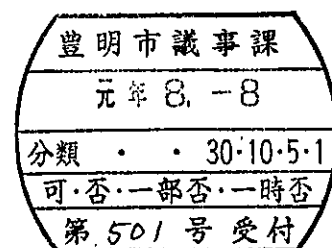 豊明市議事課
元年 8. -8
分類 ・ ・ 30・10・5・1
可・否・一部否・一時否
第 501 号 受付